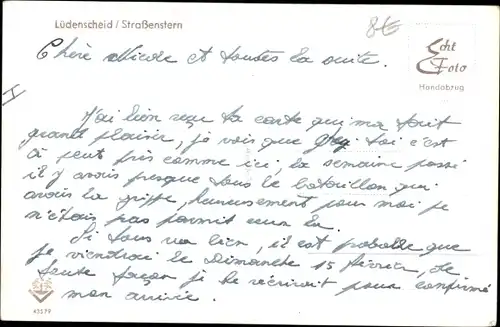 Lüdenscheid / Straßenstern
8€
Echt
Foto
Handabzug
Chère Nicole et toutes la suite.
J'ai bien reçu ta carte qui ma fait
grand plaisir, je vois que toi c'est
à peut près comme ici, la semaine passé
il y avais presque tous le bataillon qui
avais la grippe, heureusement pour moi je
n'étais pas parmit ceux la.
Si tous va bien, il est probable que
je viendrai le Dimanche 15 février, de
toute façon je te récrirait pour confirmé
mon arrivée.
43179